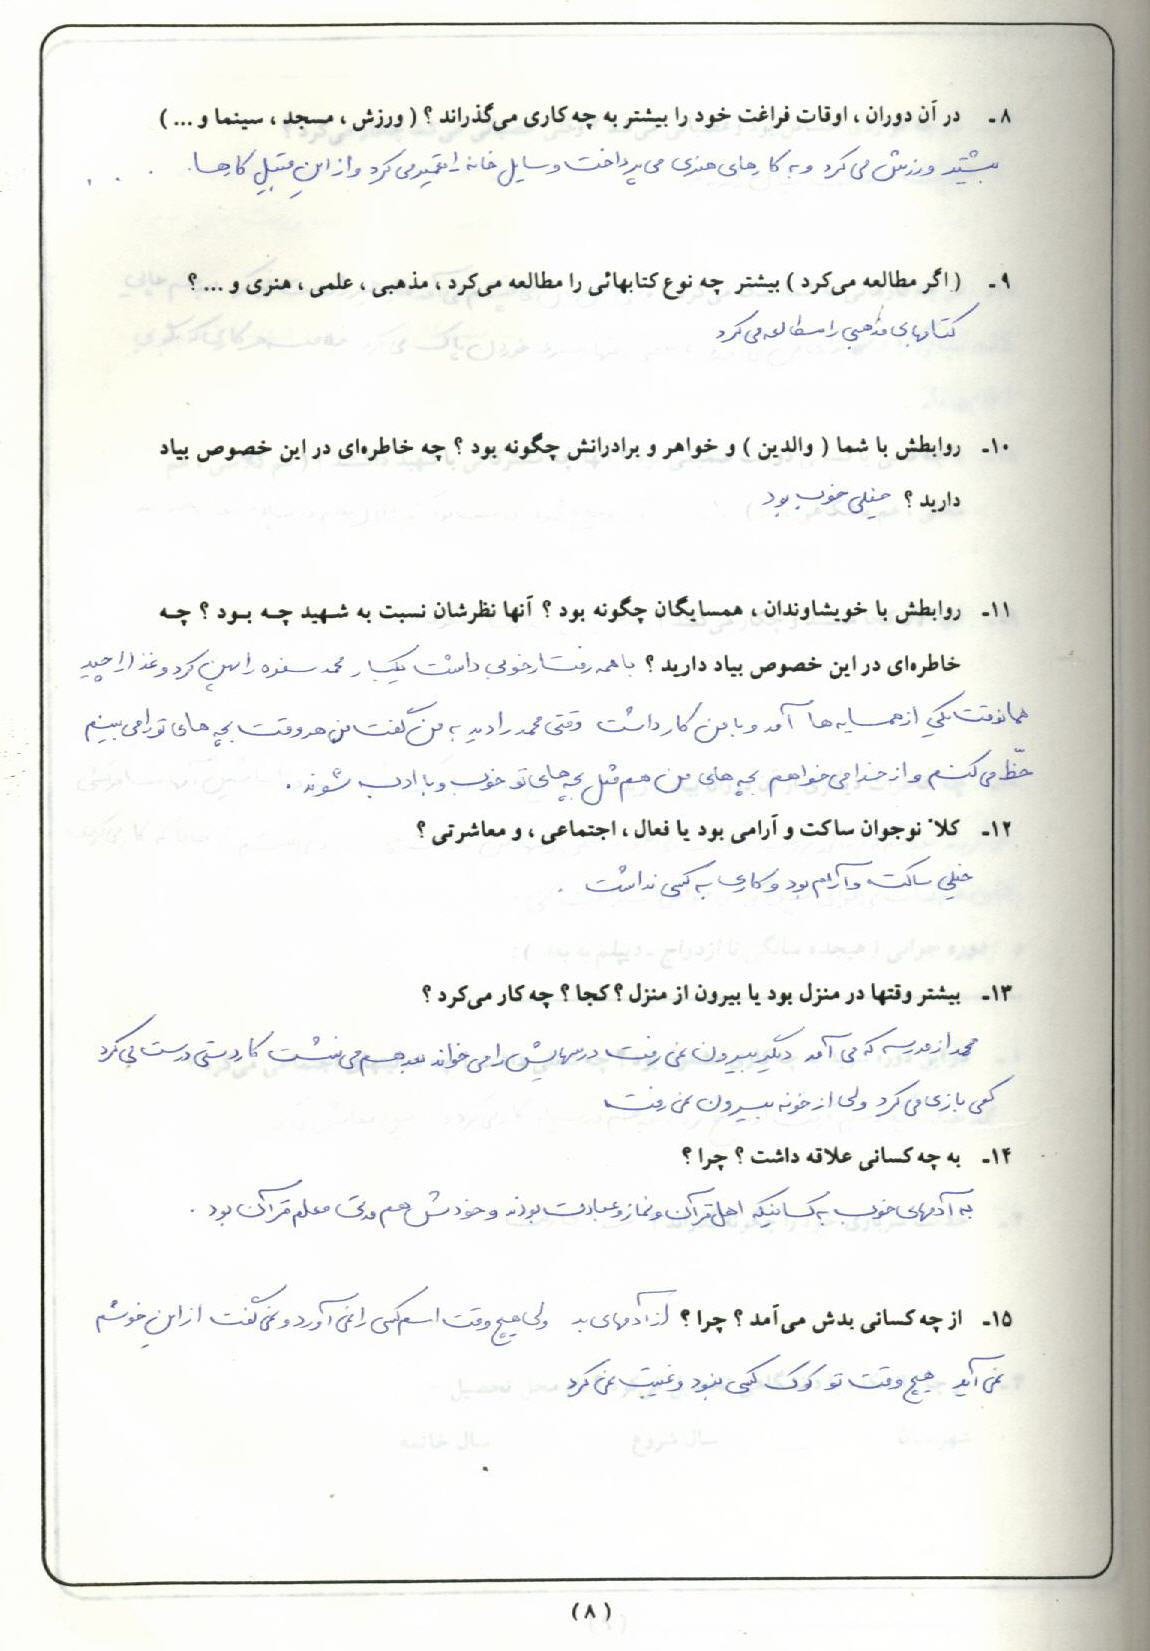 ۸ـ در آن دوران ، اوقات فراغت خود را بیشتر به چه کاری می‌گذراند ؟ ( ورزش ، مسجد ، سینما و ... )
بیشتر ورزش می کرد و به کارهای هنری می پرداخت وسایل خانه را تعمیر می کرد و از این قبیل کارها. . . .
۹ـ ( اگر مطالعه می‌کرد ) بیشتر چه نوع کتابهائی را مطالعه می‌کرد ، مذهبی ، علمی ، هنری و ... ؟
کتابهای مذهبی را مطالعه می کرد
۱۰ـ روابطش با شما ( والدین ) و خواهر و برادرانش چگونه بود ؟ چه خاطره‌ای در این خصوص بیاد
دارید ؟ خیلی خوب بود
۱۱ـ روابطش با خویشاوندان ، همسایگان چگونه بود ؟ آنها نظرشان نسبت به شهید چه بود ؟ چه
خاطره‌ای در این خصوص بیاد دارید ؟ با همه رفتار خوبی داشت یکبار محمد سفره را پهن کرد و غذا را چید
همانوقت یکی از همسایه ها آمد و با من کار داشت وقتی محمد را دید به من گفت من هر وقت بچه های تو را می بینم
حظّ می کنم و از خدا می خواهم بچه های من هم مثل بچه های تو خوب و با ادب شوند .
۱۲ـ کلاً نوجوان ساکت و آرامی بود یا فعال ، اجتماعی ، و معاشرتی ؟
خیلی ساکت و آرام بود و کاری به کسی نداشت .
۱۳ـ بیشتر وقتها در منزل بود یا بیرون از منزل ؟ کجا ؟ چه کار می‌کرد ؟
محمد از مدرسه که می آمد دیگر بیرون نمی رفت درسهایش را می خواند بعد هم می نشست کاردستی درست می کرد
کمی بازی می کرد ولی از خونه بیرون نمی رفت
۱۴ـ به چه کسانی علاقه داشت ؟ چرا ؟
به آدمهای خوب به کسانیکه اهل قرآن و نماز و عبادت بودند و خودش هم مدتی معلم قرآن بود .
۱۵ـ از چه کسانی بدش می‌آمد ؟ چرا ؟ از آدمهای بد ولی هیچ وقت اسم کسی را نمی آورد و نمی گفت از این خوشم
نمی آید هیچ وقت تو کوک کسی نبود و غیبت نمی کرد
( ۸ )